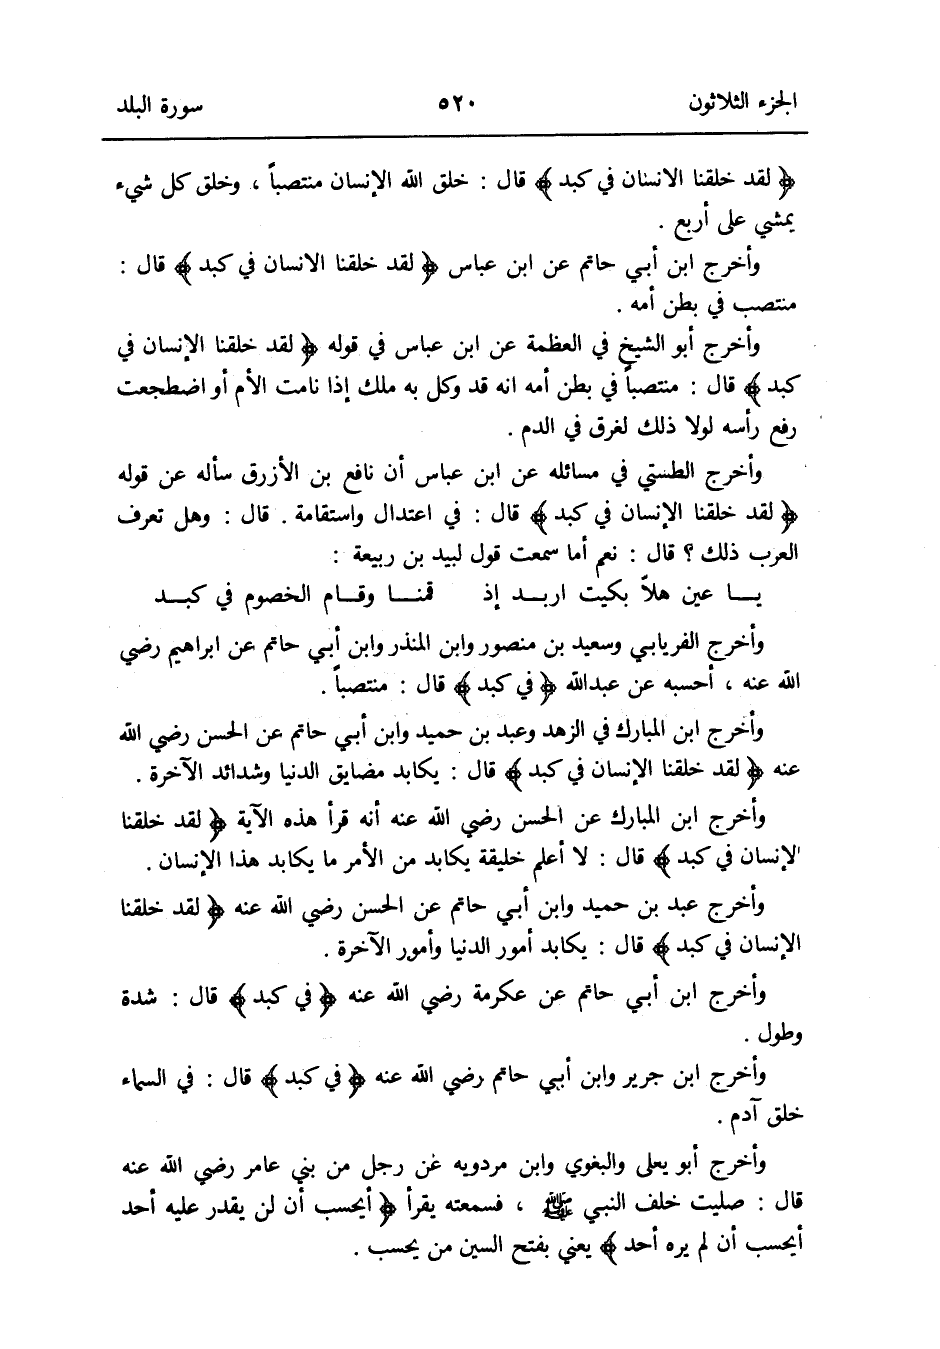 الجزء الثلاثون ٥٢٠ سورة البلد
﴿ لقد خلقنا الانسان في كبد ﴾ قال : خلق الله الإنسان منتصباً ، وخلق كل شيء
يمشي على أربع .
وأخرج ابن أبي حاتم عن ابن عباس ﴿ لقد خلقنا الانسان في كبد ﴾ قال :
منتصب في بطن أمه .
وأخرج أبو الشيخ في العظمة عن ابن عباس في قوله ﴿ لقد خلقنا الإنسان في
كبد ﴾ قال : منتصباً في بطن أمه انه قد وكل به ملك إذا نامت الأم أو اضطجعت
رفع رأسه لولا ذلك لغرق في الدم .
وأخرج الطستي في مسائله عن ابن عباس أن نافع بن الأزرق سأله عن قوله
﴿ لقد خلقنا الإنسان في كبد ﴾ قال : في اعتدال واستقامة . قال : وهل تعرف
العرب ذلك ؟ قال : نعم أما سمعت قول لبيد بن ربيعة :
يـــا عين هلاّ بكيت اربــد إذ قمنــا وقــام الخصوم في كبــد
وأخرج الفريابي وسعيد بن منصور وابن المنذر وابن أبي حاتم عن ابراهيم رضي
الله عنه ، أحسبه عن عبدالله ﴿ في كبد ﴾ قال : منتصباً .
وأخرج ابن المبارك في الزهد وعبد بن حميد وابن أبي حاتم عن الحسن رضي الله
عنه ﴿ لقد خلقنا الإنسان في كبد ﴾ قال : يكابد مضايق الدنيا وشدائد الآخرة .
وأخرج ابن المبارك عن الحسن رضي الله عنه أنه قرأ هذه الآية ﴿ لقد خلقنا
الإنسان في كبد ﴾ قال : لا أعلم خليقة يكابد من الأمر ما يكابد هذا الإنسان .
وأخرج عبد بن حميد وابن أبي حاتم عن الحسن رضي الله عنه ﴿ لقد خلقنا
الإنسان في كبد ﴾ قال : يكابد أمور الدنيا وأمور الآخرة .
وأخرج ابن أبي حاتم عن عكرمة رضي الله عنه ﴿ في كبد ﴾ قال : شدة
وطول .
وأخرج ابن جرير وابن أبي حاتم رضي الله عنه ﴿ في كبد ﴾ قال : في السماء
خلق آدم .
وأخرج أبو يعلى والبغوي وابن مردويه عن رجل من بني عامر رضي الله عنه
قال : صليت خلف النبي ﷺ ، فسمعته يقرأ ﴿ أيحسب أن لن يقدر عليه أحد
أيحسب أن لم يره أحد ﴾ يعني بفتح السين من يحسب .